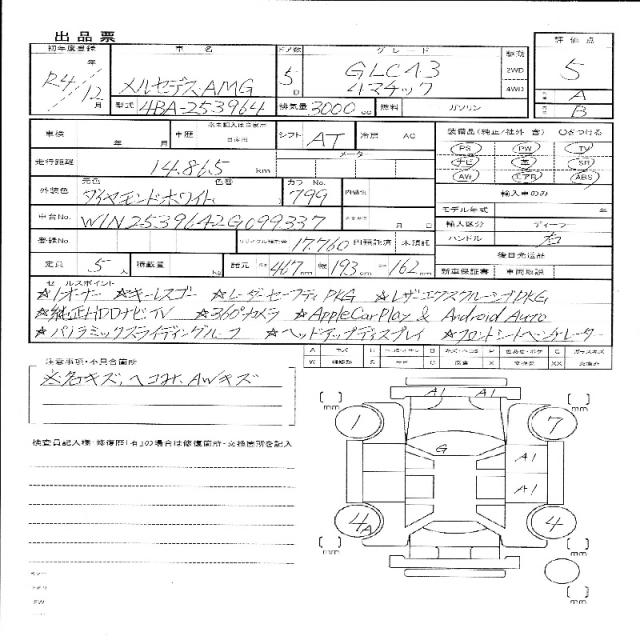 出品票
初年度登録 車名 ドア数 グレード 駆動 評価点
R4年 12月 メルセデスAMG 5D GLC43 4マチック 2WD 4WD 5
型式 4BA-253964 排気量 3000cc 燃料 ガソリン A B
車検 年 月 車歴 シフト AT 冷房 AC 装備品(純正/社外 含) ○をつける
走行距離 14,865 km メーター PS PW TV
ナビ 革 SR
外装色 元色 ダイヤモンドホワイト 色替 カラーNo. 799 内装色 AW エアB ABS
輸入車のみ
車台No. W1N2539642G099337 月 日 モデル年式 年
登録No. リサイクル預託金 17,760 円 預託済 未預託 輸入区分 ディーラー
ハンドル 右
定員 5人 積載量 kg 諸元 長さ 467cm 幅 193cm 高さ 162cm 後日発送部品
新車保証書 車両取説
セールスポイント
☆1オーナー ☆キーレスゴー ☆レーダーセーフティPKG ☆レザーエクスクルーシブPKG
☆純正HDDナビ・TV ☆360°カメラ ☆AppleCarPlay & Android Auto
☆パノラミックスライディングルーフ ☆ヘッドアップディスプレイ ☆フロントシートベンチレーター
注意事項・不具合箇所
※各キズ、ヘコミ、AWキズ
検査員記入欄・修復歴(有)の場合は修復箇所・交換箇所を記入
mm mm
A1 A1
1 7
G A1
A1
4 A 4
mm mm